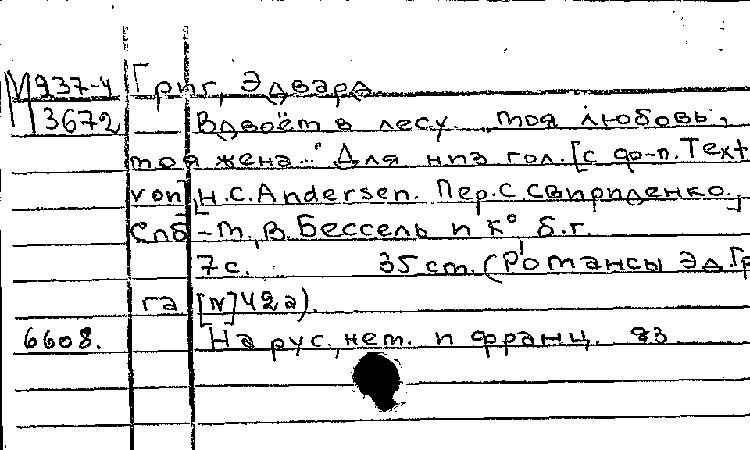 М 937-4 Григ, Эдвард.
П 3672 Вдвоём в лесу „Твоя любовь,
твоя жена..." Для низ гол. [с ф-п. Text
von] H.C. Andersen. Пер. С. Свириденко.
Спб - М, В. Бессель и К° б.г.
7 с. 35 cm. (Романсы Эд. Гри
га [N] 42a).
6608. На рус., нем. и франц. яз